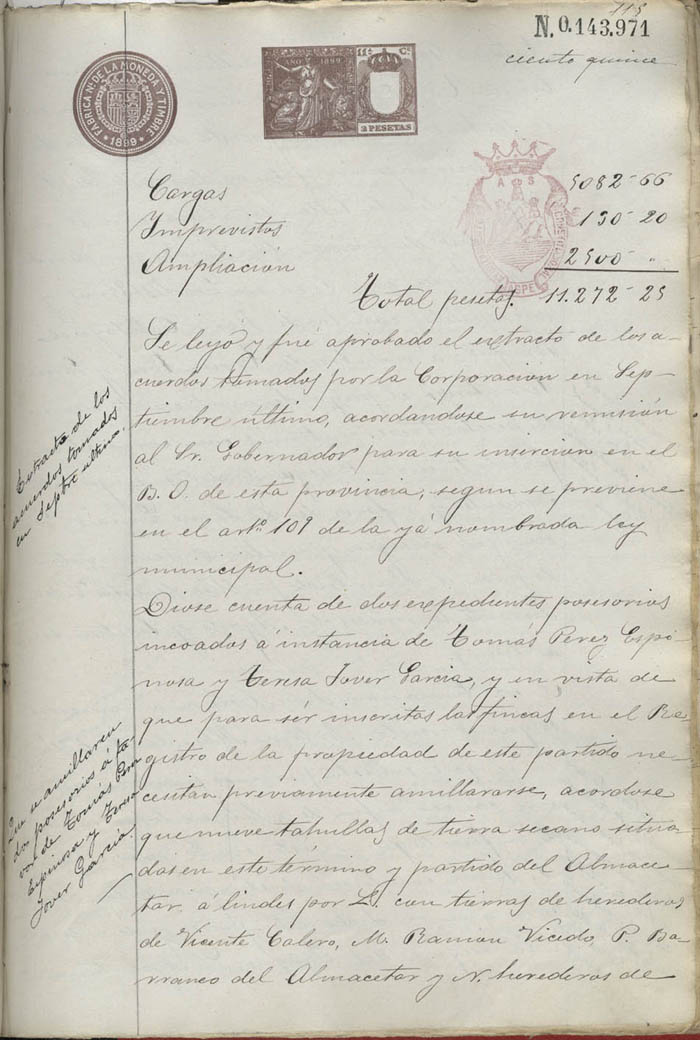 115
N. 0.143.971
ciento quince
FABRICA NL DE LA MONEDA Y TIMBRE
1899
AÑO 1899
11ª C.
2 PESETAS
A S
ASPE
Cargas 5082-66
Imprevistos 130-20
Ampliación 2500- "
Total pesetas. 11.272-25
Se leyó y fué aprobado el extracto de los a-
cuerdos tomados por la Corporacion en Sep-
tiembre último, acordandose su remisión
al Sr. Gobernador para su insercion en el
B. O. de esta provincia, segun se previene
en el artº 109 de la yá nombrada ley
municipal.
Extracto de los
acuerdos tomados
en Septbre último.
Diose cuenta de dos expedientes posesorios
incoados á instancia de Tomás Perez Espi-
nosa y Teresa Jover Garcia, y en vista de
que para sér inscritas las fincas en el Re-
gistro de la propiedad de este partido ne-
cesitan previamente amillararse, acordose
que nueve tahullas de tierra secano situa-
das en este término y partido del Almace-
tar á lindes por L. con tierras de herederos
de Vicente Calero, M. Ramon Vicedo, P. Ba-
rranco del Almacetar y N. herederos de
Que se amillaren
dos posesorios á fa-
vor de Tomás Perez
Espinosa y Teresa
Jover Garcia.